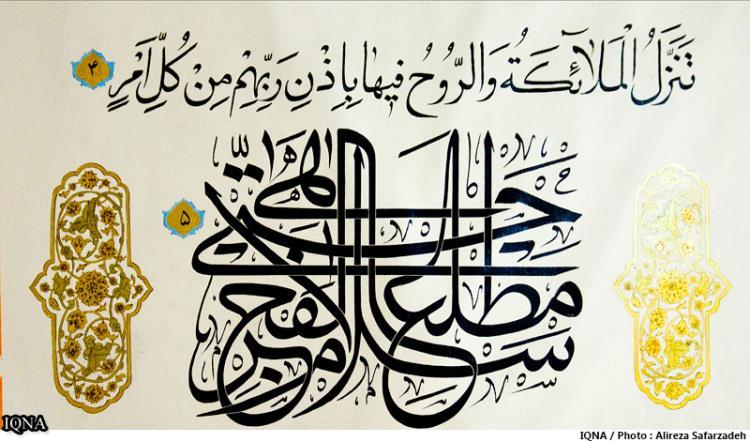 تَنَزَّلُ الْمَلَائِكَةُ وَالرُّوحُ فِيهَا بِإِذْنِ رَبِّهِمْ مِنْ كُلِّ أَمْرٍ ۴
سلام هی حتی مطلع الفجر ۵
IQNA
IQNA / Photo : Alireza Safarzadeh